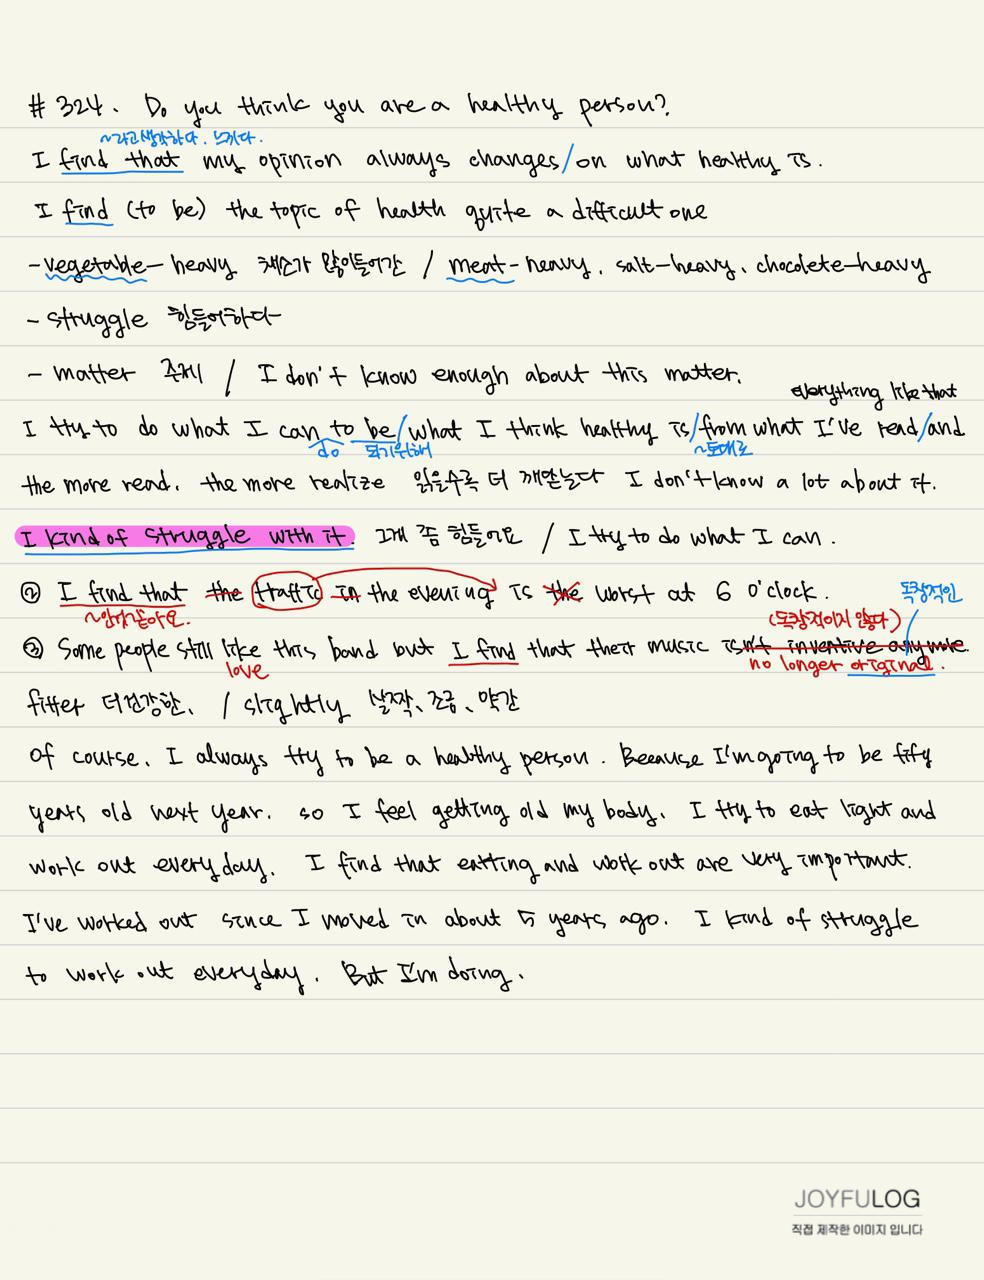 # 324. Do you think you are a healthy person?
~라고 생각하다. 느끼다.
I find that my opinion always changes / on what healthy is.
I find (to be) the topic of health quite a difficult one
- vegetable-heavy 채소가 많이들어간 / meat-heavy, salt-heavy, chocolete-heavy
- struggle 힘들어하다
- matter 주제 / I don't know enough about this matter.
everything like that
I try to do what I can to be / what I think healthy is / from what I've read / and
do 되기위해 ~토대로
the more read. the more realize 읽을수록 더 깨닫는다 I don't know a lot about it.
I kind of struggle with it. 그게 좀 힘들어요 / I try to do what I can.
② I find that the traffic in the evening is the worst at 6 o'clock. 독창적인
~인것같아요. (독창적이지 않다)
③ Some people still like this band but I find that their music isn't inventive anymore.
love no longer original.
fitter 더건강한, / slightly 살짝, 조금, 약간
Of course, I always try to be a healthy person. Because I'm going to be fify
years old next year. so I feel getting old my body. I try to eat light and
work out everyday. I find that eatting and work out are very important.
I've worked out since I moved in about 5 years ago. I kind of struggle
to work out everyday. But I'm doing.
JOYFULOG
직접 제작한 이미지 입니다